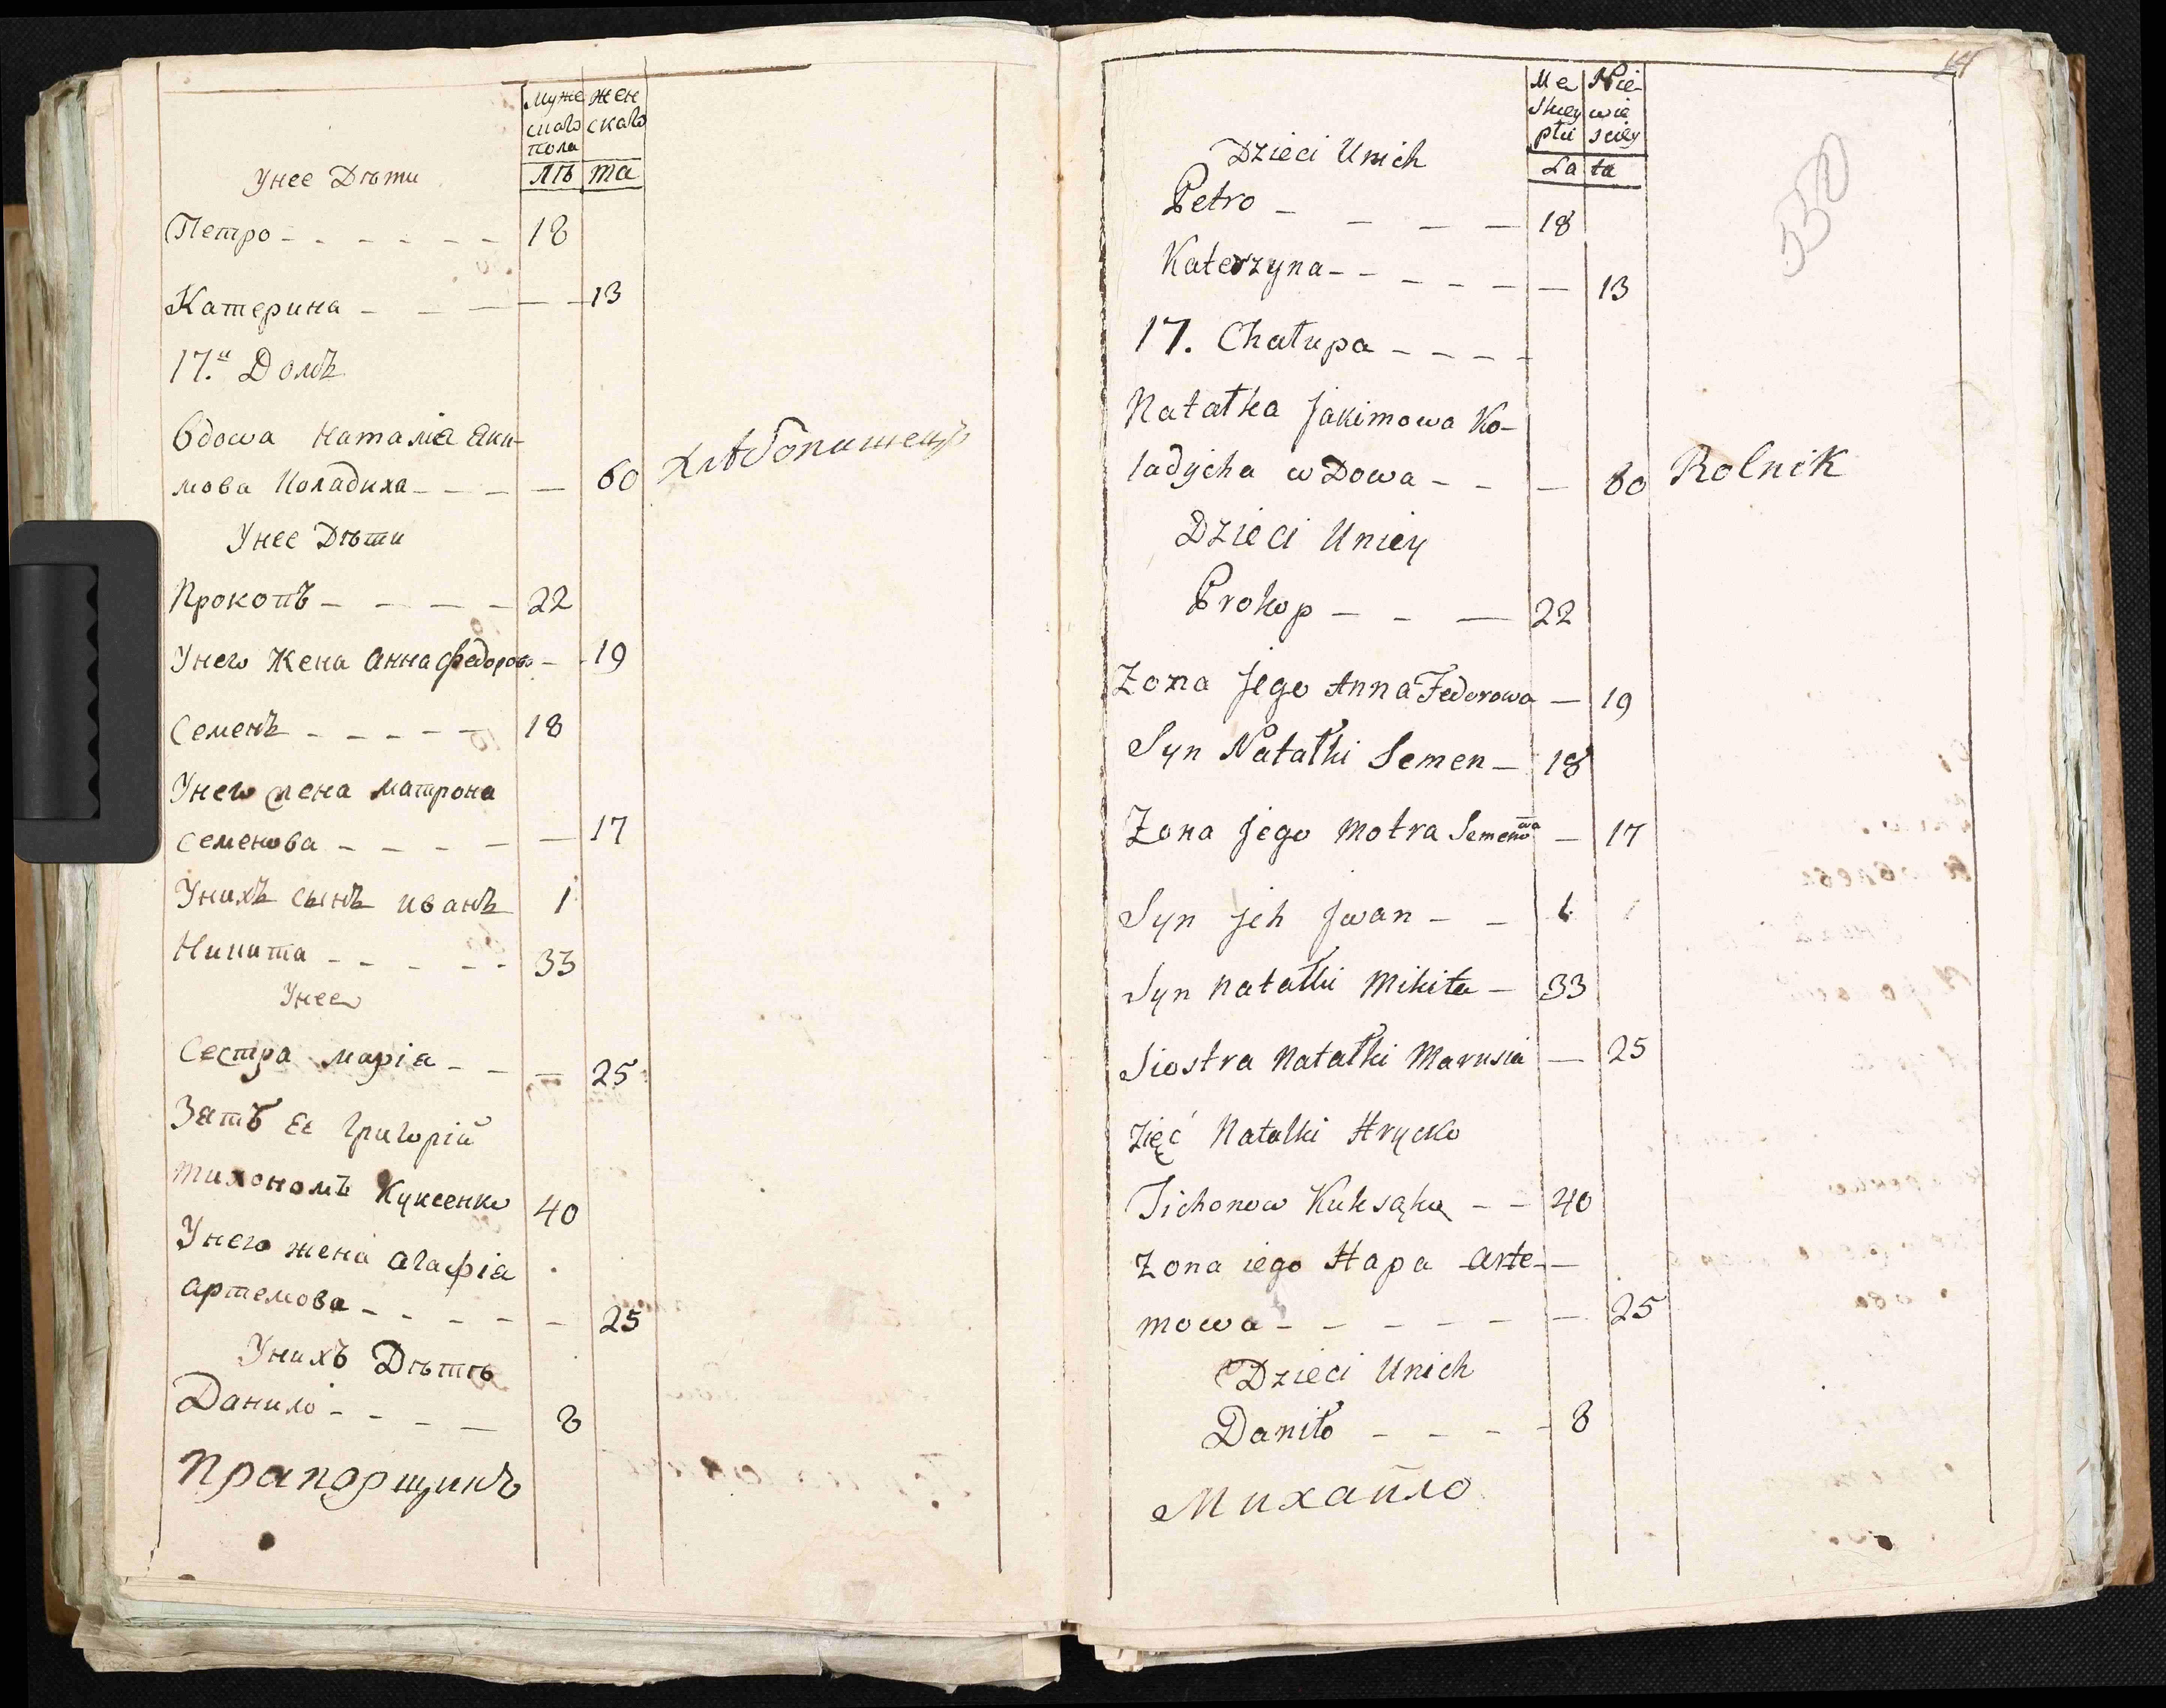 муже жен
скаго скаго
пола
лѣ та
Унее Дѣти
Петро - - - - - - 18
Катерина - - - - - 13
17.й Домъ
вдова Наталiя Яки-
мова Коладиха - - - - 60 хлѣбопашецъ
Унее Дѣти
Прокопъ - - - - 22
Унего Жена Анна Федорова - - 19
Семенъ - - - - - 18
Унего жена матрона
Семенова - - - - - 17
Унихъ сынъ иванъ 1
Никита - - - - - 33
Унее
Сестра марiя - - - 25
Зятъ Ее Григорiй
тихономъ Куксенко 40
Унего жена агафiя
артемова - - - - - 25
Унихъ Дѣтѣ
Данило - - - - 8
Прапорщикъ
Me Nie-
skiey wie
płci sciey
La ta
Dzieci Unich
Petro - - - - 18
Katerzyna - - - - - - 13
17. Chałupa - - - -
Natałka Jakimowa Ko-
ladycha wDowa - - - 60 Rolnik
Dzieci Uniey
Prokop - - - 22
Zona Jego Anna Fedorowa - 19
Syn Natałki Semen - 18
Zona Jego Motra Semenowa - 17
Syn Jch Jwan - - 1
Syn Natałki Mikita - 33
Siostra Natałki Marusia - 25
Zięć Natalki Hrycko
Tichonow Kuksąka - - 40
Zona iego Hapa Arte- -
mowa - - - - - - 25
Dzieci Unich
Daniło - - - - 8
Михайло